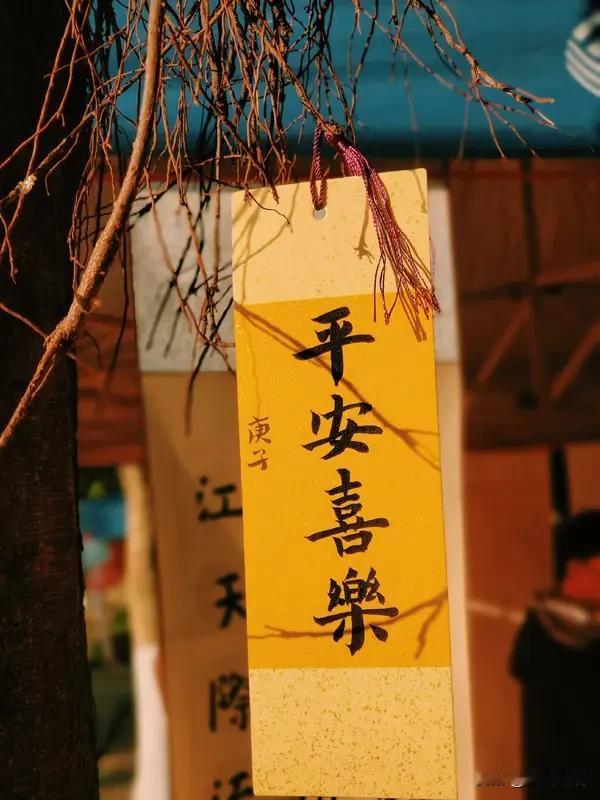 平安喜樂
庚子
江天際